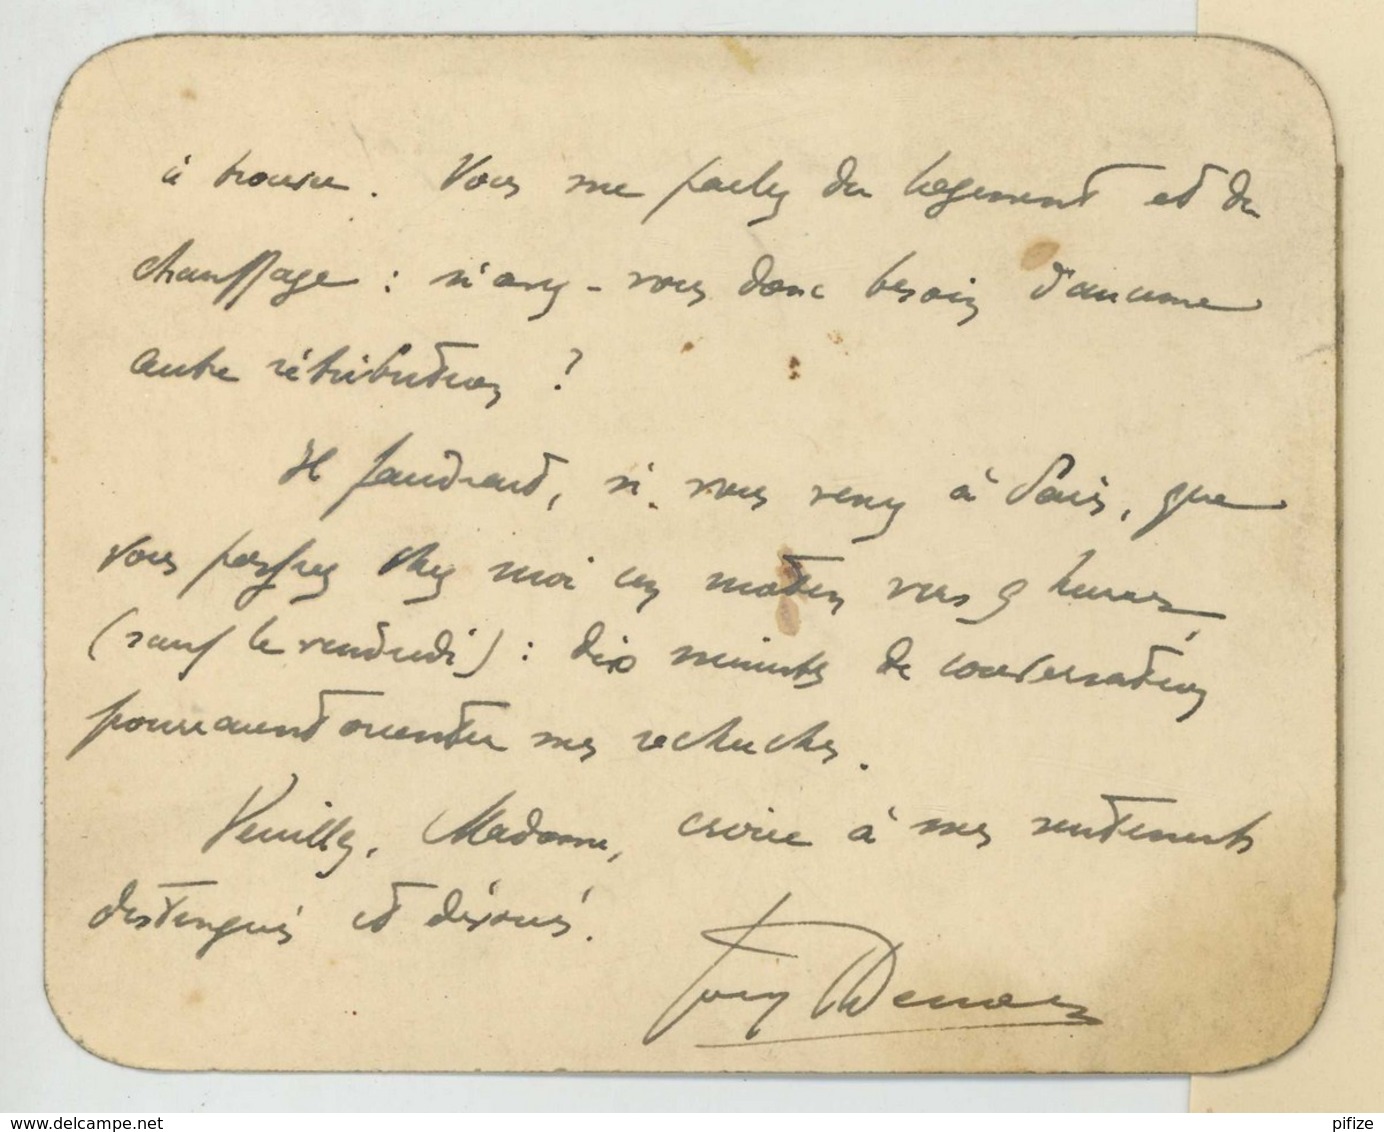 à trouver. Vous me parlez du logement et du
chauffage : n'avez-vous donc besoin d'aucune
autre rétribution ?
Il faudrait, si vous venez à Paris, que
vous passiez chez moi un matin vers 9 heures,
(sauf le vendredi) : dix minutes de conversation
pourraient orienter mes recherches.
Veuillez, Madame, croire à mes sentiments
distingués et dévoués.
www.delcampe.net
pifize